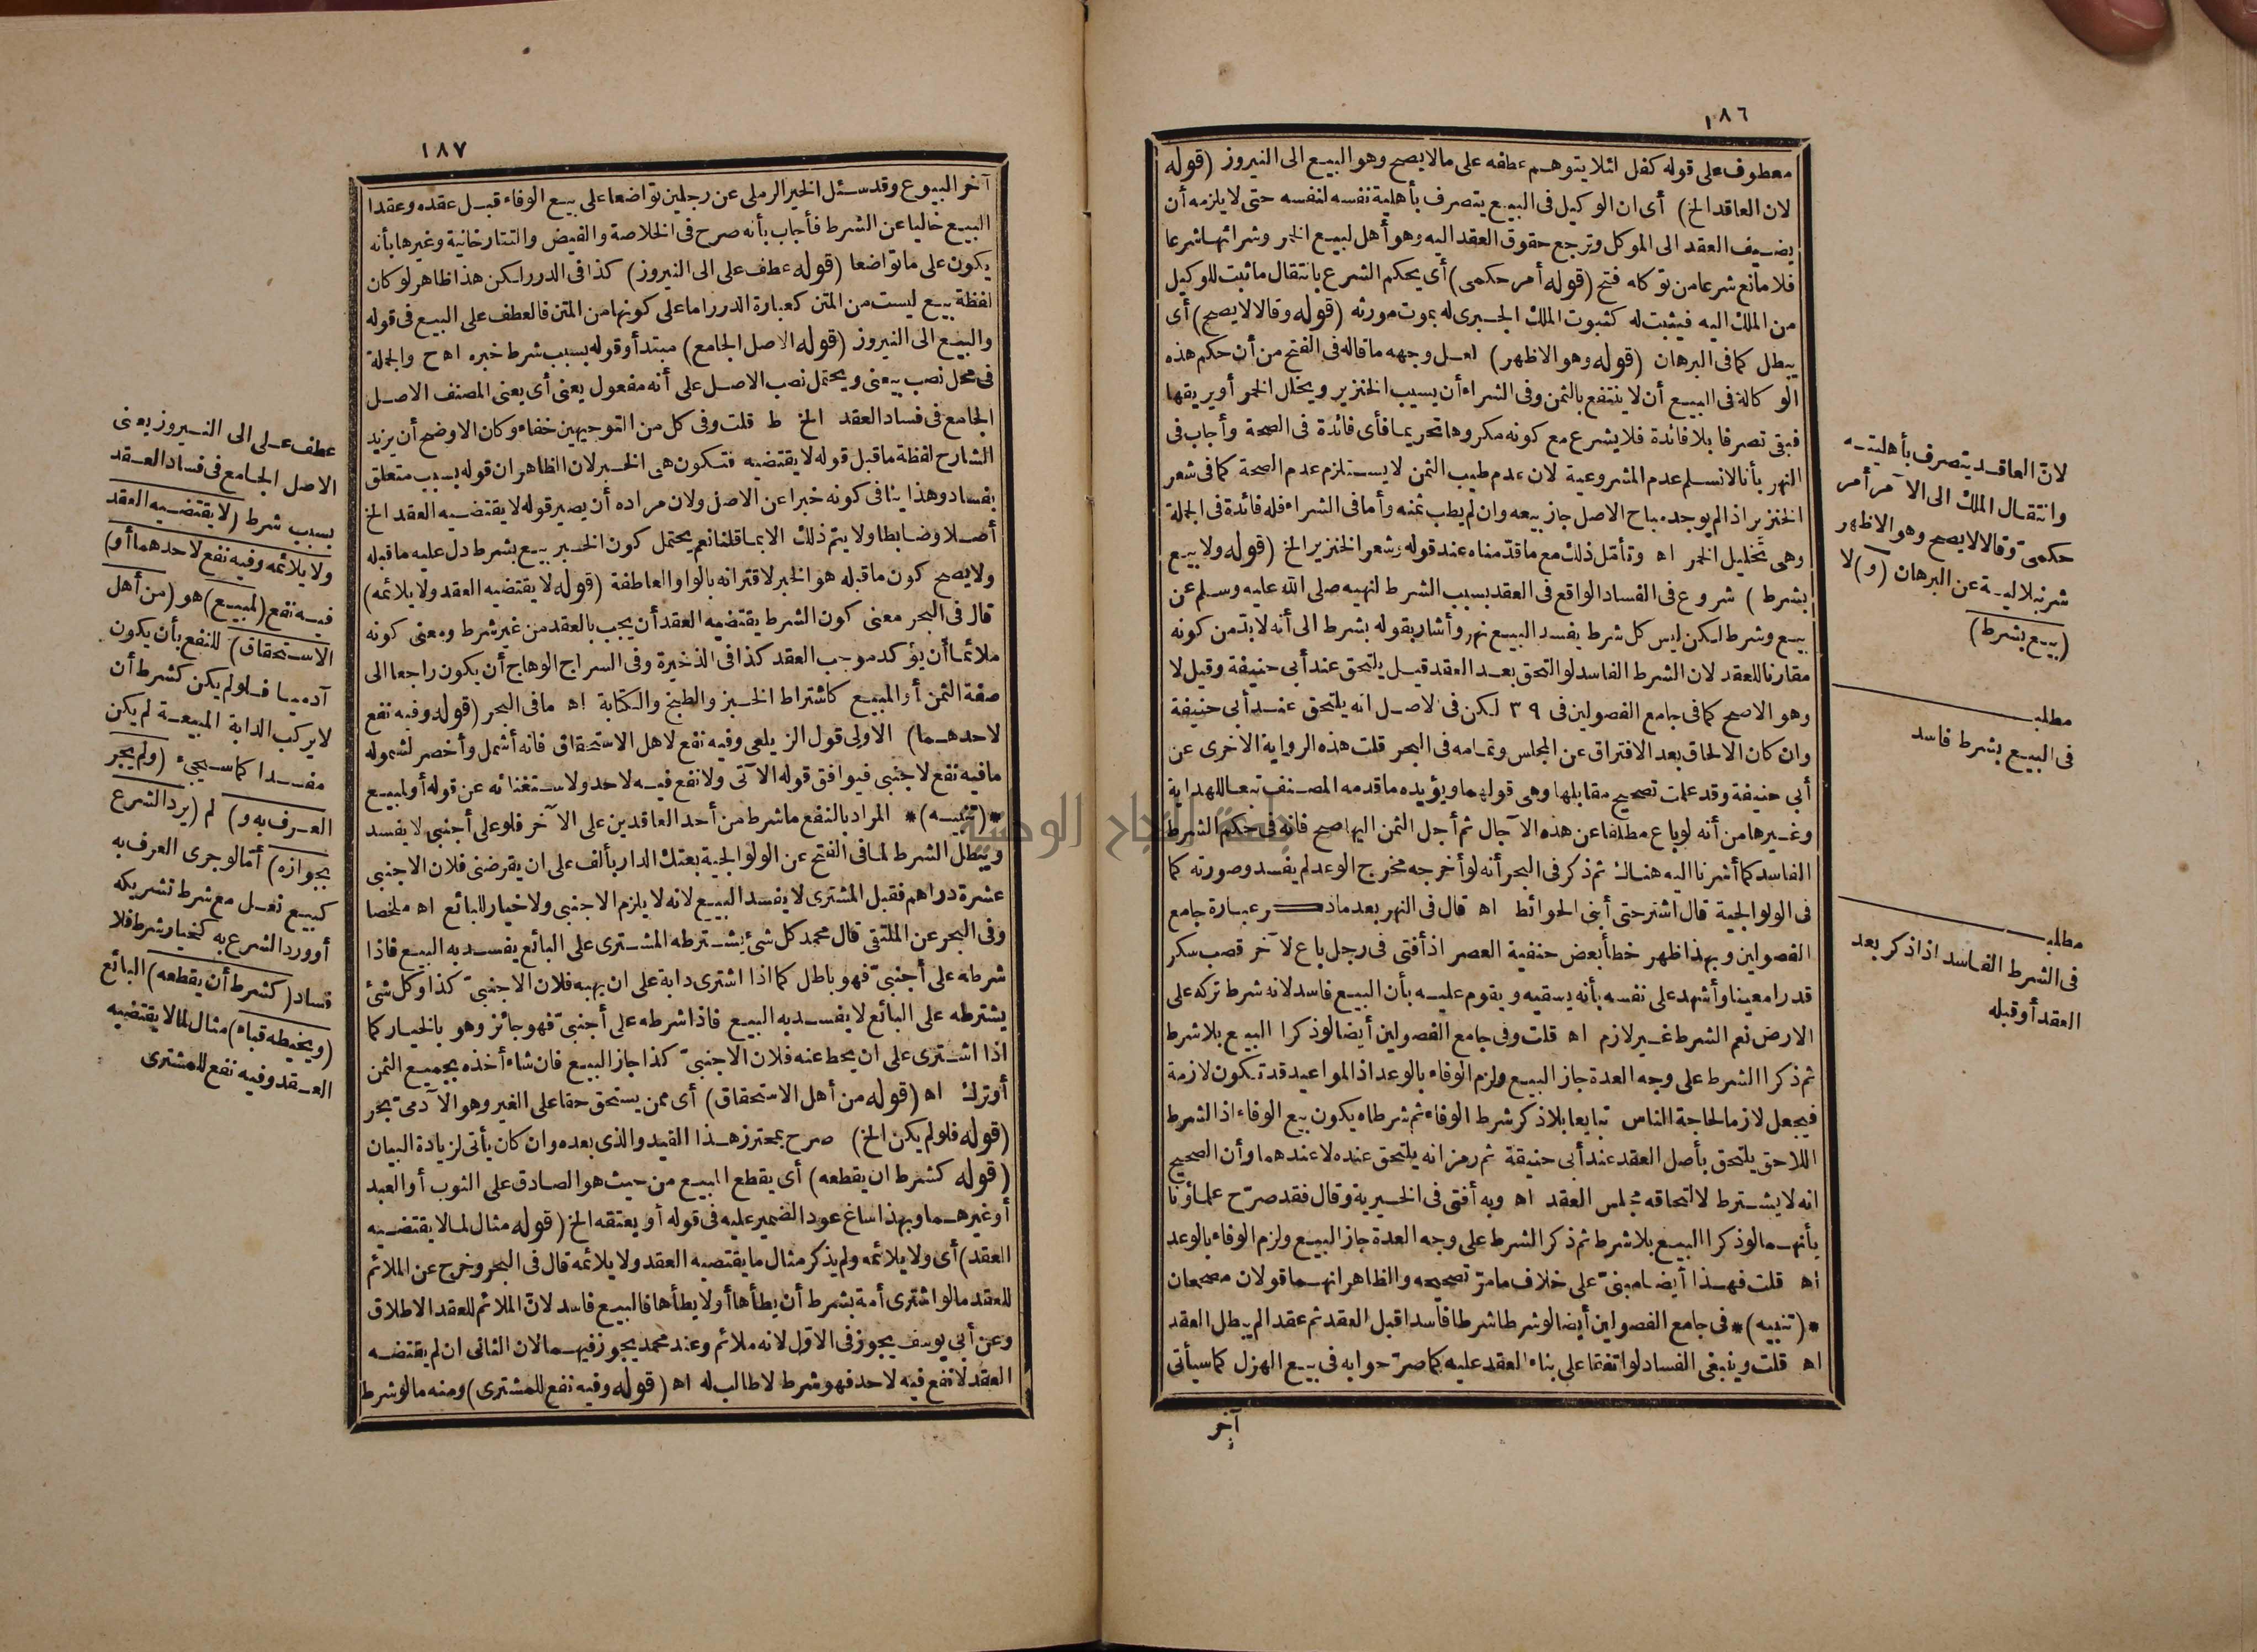 ١٨٦
معطوف على قوله كفل لئلا يتوهم عطفه على مالا يصح وهو البيع الى النيروز (قوله
لان العاقد الخ) أى ان الوكيل فى البيع يتصرف بأهلية نفسه لنفسه حتى لا يلزمه أن
يضيف العقد الى الموكل وترجع حقوق العقد اليه وهو أهل لبيع الخمر وشرائها شرعا
فلا مانع شرعا من توكله فتح (قوله أمر حكمى) أى يحكم الشرع بانتقال ما ثبت للوكيل
من الملك اليه فيثبت له كثبوت الملك الجبرى له بموت مورثه (قوله وقالا لا يصح) أى
يبطل كما فى البرهان (قوله وهو الاظهر) لعل وجهه ما قاله فى الفتح من أن حكم هذه
الوكالة فى البيع أن لا ينتفع بالثمن وفى الشراء أن يسيب الخنزير ويخلل الخمر أو يريقها
فبقى تصرفا بلا فائدة فلا يشرع مع كونه مكروها تحريما فأى فائدة فى الصحة وأجاب فى
النهر بأنا لانسلم عدم المشروعية لان عدم طيب الثمن لا يستلزم عدم الصحة كما فى شعر
الخنزير اذا لم يوجد مباح الاصل جاز بيعه وان لم يطب ثمنه وأما فى الشراء فله فائدة فى الجملة
وهى تخليل الخمر اه وتأمل ذلك مع ما قدمناه عند قوله وشعر الخنزير الخ (قوله ولا بيع
بشرط) شروع فى الفساد الواقع فى العقد بسبب الشرط لنهيه صلى الله عليه وسلم عن
بيع وشرط لكن ليس كل شرط يفسد البيع نهر وأشار بقوله بشرط الى أنه لابد من كونه
مقارنا للعقد لان الشرط الفاسد لو التحق بعد العقد قيل يلتحق عند أبى حنيفة وقيل لا
وهو الاصح كما فى جامع الفصولين فى ٣٩ لكن فى الاصل انه يلتحق عند أبى حنيفة
وان كان الالحاق بعد الافتراق عن المجلس وتمامه فى البحر قلت هذه الرواية الاخرى عن
أبى حنيفة وقد علمت تصحيح مقابلها وهى قولهما ويؤيده ما قدمه المصنف تبعا للهداية
وغيرها من أنه لو باع مطلقا عن هذه الآجال ثم أجل الثمن اليها صح فانه فى حكم الشرط
الفاسد كما أشرنا اليه هناك ثم ذكر فى البحر أنه لو أخرجه مخرج الوعد لم يفسد وصورته كما
فى الولوالجية قال اشتر حتى أبنى الحوائط اه قال فى النهر بعد ما ذكر عبارة جامع
الفصولين وبهذا ظهر خطأ بعض حنفية العصر اذ أفتى فى رجل باع لآخر قصب سكر
قدرا معينا وأشهد على نفسه بأنه يسقيه ويقوم عليه بأن البيع فاسد لانه شرط تركه على
الارض نعم الشرط غير لازم اه قلت وفى جامع الفصولين أيضا لو ذكرا البيع بلا شرط
ثم ذكرا الشرط على وجه العدة جاز البيع ولزم الوفاء بالوعد اذ المواعيد قد تكون لازمة
فيجعل لازما لحاجة الناس تبايعا بلا ذكر شرط الوفاء ثم شرطاه يكون بيع الوفاء اذ الشرط
اللاحق يلتحق بأصل العقد عند أبى حنيفة ثم رمز انه يلتحق عنده لا عندهما وأن الصحيح
انه لا يشترط لالتحاقه مجلس العقد اه وبه أفتى فى الخيرية وقال فقد صرح علماؤنا
بأنهما لو ذكرا البيع بلا شرط ثم ذكرا الشرط على وجه العدة جاز البيع ولزم الوفاء بالوعد
اه قلت فهذا أيضا مبنى على خلاف ما مر تصحيحه والظاهر انهما قولان مصححان
*(تنبيه)* فى جامع الفصولين أيضا لو شرطا شرطا فاسدا قبل العقد ثم عقدا لم يبطل العقد
اه قلت وينبغى الفساد لو اتفقا على بناء العقد عليه كما صرحوا به فى بيع الهزل كما سيأتى
آخر
لان العاقد يتصرف بأهليته
وانتقال الملك الى الآمر أمر
حكمى وقالا لا يصح وهو الاظهر
شرنبلالية عن البرهان (و) لا
(بيع بشرط)
مطلب
فى البيع بشرط فاسد
مطلب
فى الشرط الفاسد اذا ذكر بعد
العقد أو قبله
١٨٧
آخر البيوع وقد سئل الخير الرملى عن رجلين تواضعا على بيع الوفاء قبل عقده وعقدا
البيع خاليا عن الشرط فأجاب بأنه صرح فى الخلاصة والفيض والتتارخانية وغيرها بأنه
يكون على ما تواضعا (قوله عطف على الى النيروز) كذا فى الدرر لكن هذا ظاهر لو كان
لفظة بيع ليست من المتن كعبارة الدرر اما على كونها من المتن فالعطف على البيع فى قوله
والبيع الى النيروز (قوله الاصل الجامع) مبتدأ وقوله بسبب شرط خبره اه ح والجملة
فى محل نصب بيعنى ويحتمل نصب الاصل على أنه مفعول يعنى أى يعنى المصنف الاصل
الجامع فى فساد العقد الخ ط قلت وفى كل من التوجيهين خفاء وكان الاوضح أن يزيد
الشارح لفظة ما قبل قوله لا يقتضيه فتكون هى الخبر لان الظاهر ان قوله بسبب متعلق
بفساد وهذا ينافى كونه خبرا عن الاصل ولان مراده أن يصير قوله لا يقتضيه العقد الخ
أصلا وضابطا ولا يتم ذلك الا بما قلنا نعم يحتمل كون الخبر بيع بشرط دل عليه ما قبله
ولا يصح كون ما قبله هو الخبر لاقترانه بالواو العاطفة (قوله لا يقتضيه العقد ولا يلائمه)
قال فى البحر معنى كون الشرط يقتضيه العقد أن يجب بالعقد من غير شرط ومعنى كونه
ملائما أن يؤكد موجب العقد كذا فى الذخيرة وفى السراج الوهاج أن يكون راجعا الى
صفة الثمن أو المبيع كاشتراط الخبز والطبخ والكتابة اه ما فى البحر (قوله وفيه نفع
لاحدهما) الاولى قول الزيلعى وفيه نفع لاهل الاستحقاق فانه أشمل وأخصر لشموله
ما فيه نفع لاجنبى فيوافق قوله الآتى ولا نفع فيه لاحد ولاستغنائه عن قوله أو لمبيع
*(تنبيه)* المراد بالنفع ما شرط من أحد العاقدين على الآخر فلو على أجنبى لا يفسد
ويبطل الشرط لما فى الفتح عن الولوالجية بعتك الدار بألف على ان يقرضنى فلان الاجنبى
عشرة دراهم فقبل المشترى لا يفسد البيع لانه لا يلزم الاجنبى ولا خيار للبائع اه ملخصا
وفى البحر عن الملتقى قال محمد كل شئ يشترطه المشترى على البائع يفسد به البيع فاذا
شرطه على أجنبى فهو باطل كما اذا اشترى دابة على ان يهبه فلان الاجنبى كذا وكل شئ
يشترطه على البائع لا يفسد به البيع فاذا شرطه على أجنبى فهو جائز وهو بالخيار كما
اذا اشترى على ان يحط عنه فلان الاجنبى كذا جاز البيع فان شاء أخذه بجميع الثمن
أو ترك اه (قوله من أهل الاستحقاق) أى ممن يستحق حقا على الغير وهو الآدمى بحر
(قوله فلو لم يكن الخ) صرح بمحترز هذا القيد والذى بعده وان كان يأتى لزيادة البيان
(قوله كشرط ان يقطعه) أى يقطع المبيع من حيث هو الصادق على الثوب أو العبد
أو غيرهما وبهذا ساغ عود الضمير عليه فى قوله أو يعتقه الخ (قوله مثال لما لا يقتضيه
العقد) أى ولا يلائمه ولم يذكر مثال ما يقتضيه العقد ولا يلائمه قال فى البحر وخرج عن الملائم
للعقد ما لو اشترى أمة بشرط أن يطأها أو لا يطأها فالبيع فاسد لان الملائم للعقد الاطلاق
وعن أبى يوسف يجوز فى الاول لانه ملائم وعند محمد يجوز فيهما لان الثانى ان لم يقتضه
العقد لا نفع فيه لاحد فهو شرط لا طالب له اه (قوله وفيه نفع للمشترى) ومنه ما لو شرط
عطف على الى النيروز يعنى
الاصل الجامع فى فساد العقد
بسبب شرط (لا يقتضيه العقد
ولا يلائمه وفيه نفع لاحدهما أو)
فيه نفع (لمبيع) هو (من أهل
الاستحقاق) للنفع بأن يكون
آدميا فلو لم يكن كشرط أن
لا يركب الدابة المبيعة لم يكن
مفسدا كما سيجئ (ولم يجر
العرف به و) لم (يرد الشرع
بجوازه) أما لو جرى العرف به
كبيع نعل مع شرط تشريكه
أو ورد الشرع به كخيار شرط فلا
فساد (كشرط أن يقطعه) البائع
(ويخيطه قباء) مثال لما لا يقتضيه
العقد وفيه نفع للمشترى
جامعة النجاح الوطنية